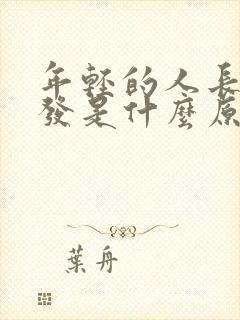 年輕的人長
發是什麼原
葉舟